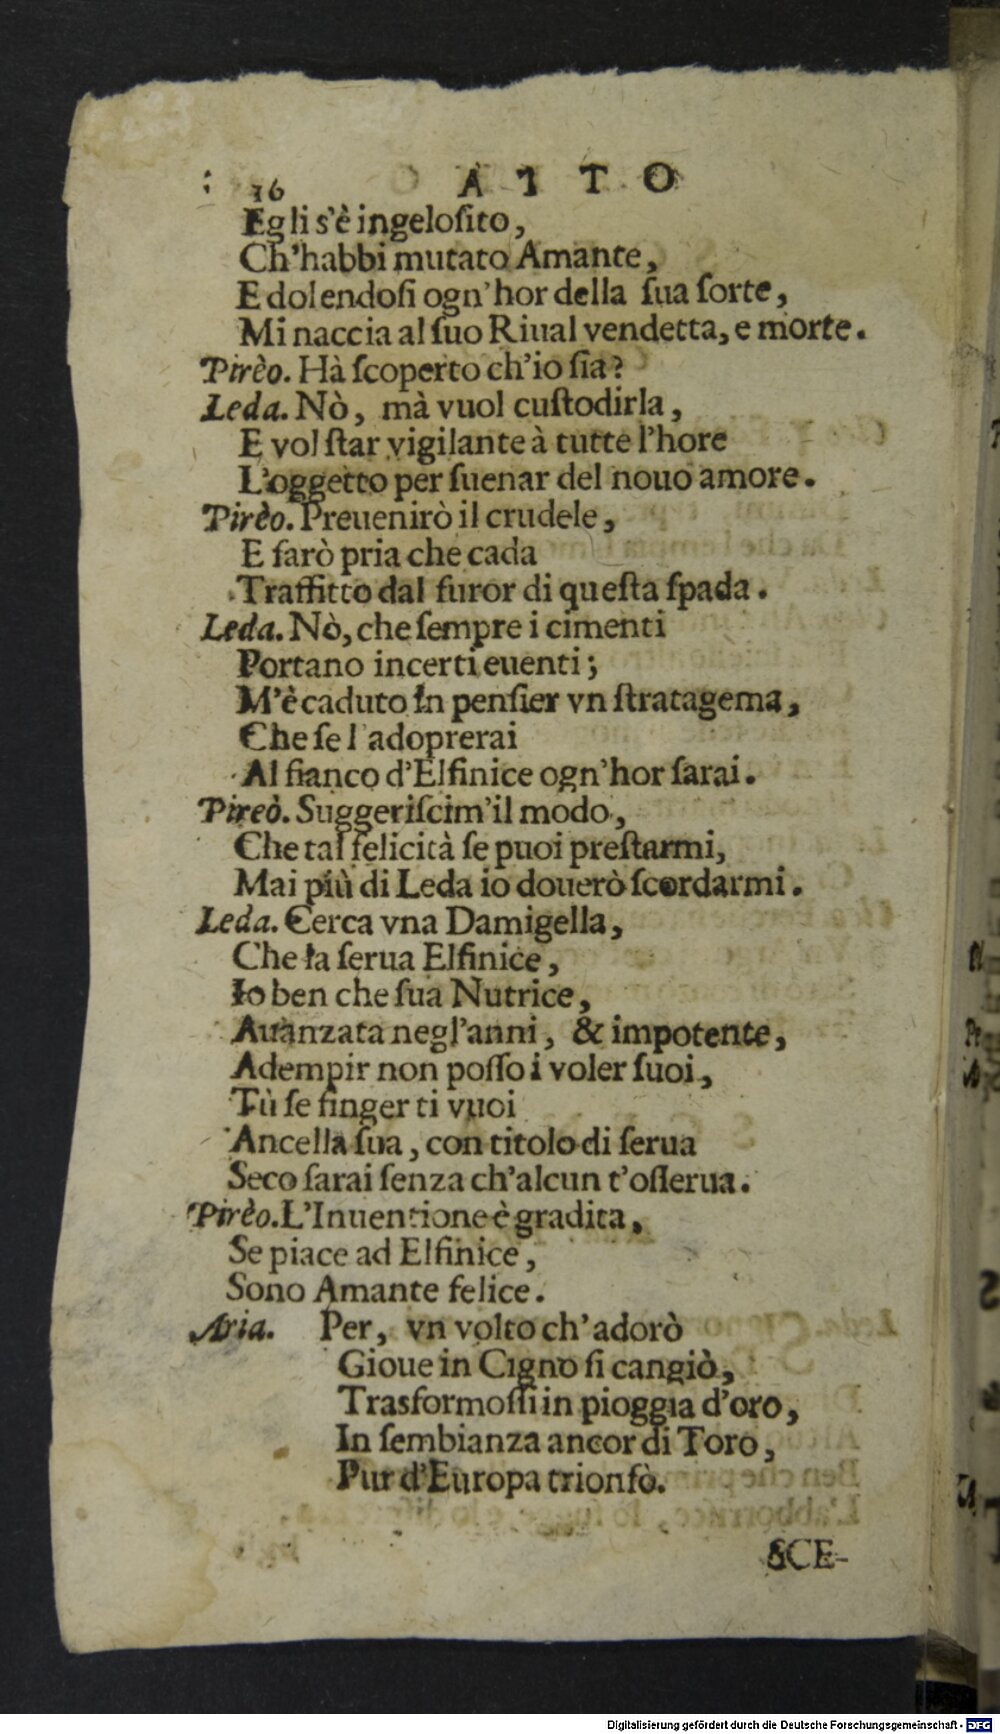 16 ATTO
Egli s'è ingelosito,
Ch'habbi mutato Amante,
E dolendosi ogn'hor della sua sorte,
Minaccia al suo Riual vendetta, e morte.
Pirèo. Hà scoperto ch'io sia?
Leda. Nò, mà vuol custodirla,
E vol star vigilante à tutte l'hore
L'oggetto per suenar del nouo amore.
Pirèo. Preuenirò il crudele,
E farò pria che cada
Traffitto dal furor di questa spada.
Leda. Nò, che sempre i cimenti
Portano incerti euenti;
M'è caduto in pensier vn stratagema,
Che se l'adoprerai
Al fianco d'Elfinice ogn'hor sarai.
Pireò. Suggeriscim'il modo,
Che tal felicità se puoi prestarmi,
Mai più di Leda io douerò scordarmi.
Leda. Cerca vna Damigella,
Che la serua Elfinice,
Io ben che sua Nutrice,
Auanzata negl'anni, & impotente,
Adempir non posso i voler suoi,
Tù se finger ti vuoi
Ancella sua, con titolo di serua
Seco sarai senza ch'alcun t'osserua.
Pirèo. L'Inuentione è gradita,
Se piace ad Elfinice,
Sono Amante felice.
Aria. Per, vn volto ch'adorò
Gioue in Cigno si cangiò,
Trasformossi in pioggia d'oro,
In sembianza ancor di Toro,
Pur d'Europa trionfò.
SCE-
Digitalisierung gefördert durch die Deutsche Forschungsgemeinschaft - DFG